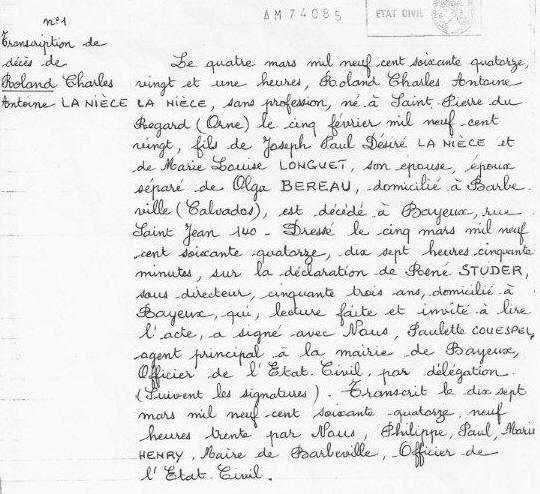 AM74085
ETAT CIVIL
n°1
Transcription de
décès de
Roland Charles
Antoine LA NIÈCE
Le quatre mars mil neuf cent soixante quatorze,
vingt et une heures, Roland Charles Antoine
LA NIÈCE, sans profession, né à Saint-Pierre du
Regard (Orne) le cinq février mil neuf cent
vingt, fils de Joseph Paul Désiré LA NIÈCE et
de Marie Louise LONGUET, son epouse, époux
séparé de Olga BEREAU, domicilié à Barbe
ville (Calvados), est décédé à Bayeux, rue
Saint Jean 140 - Dressé le cinq mars mil neuf
cent soixante quatorze, dix sept heures cinquante
minutes, sur la déclaration de René STUDER,
sous directeur, cinquante trois ans, domicilié à
Bayeux, qui, lecture faite et invité à lire
l'acte, a signé avec Nous, Paulette COUESPEL,
agent principal à la mairie de Bayeux,
Officier de l'Etat-Civil, par délégation.
(Suivent les signatures). Transcrit le dix sept
mars mil neuf cent soixante quatorze, neuf
heures trente par Nous, Philippe, Paul, Marie
HENRY, Maire de Barbeville, Officier de
l'Etat-Civil.